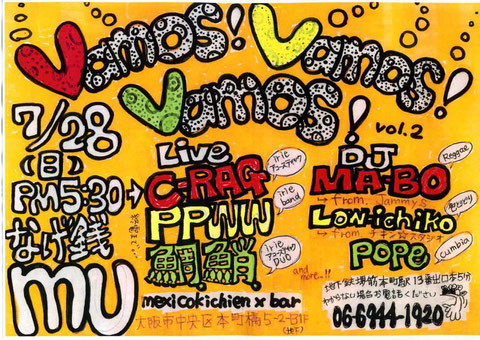 Vamos! Vamos!
Vamos!
vol.2
7/28
(日)
PM5:30→
なげ銭
mu
Live
C-RAG
irie
アコースティック
PPWW
irie
band
鯛鮹
irie
アコースティック
DUO
and more...!!
DJ
MA-BO
Reggae
→ from. Jammys
Low-ichiko
→ from. チキン☆スタジオ
Pope
cumbia
mexicokichien x bar
大阪市中央区本町橋5-2-B1F
(地下)
地下鉄堺筋本町駅 13番出口 5分
わからない場合お電話ください
06-6944-1920